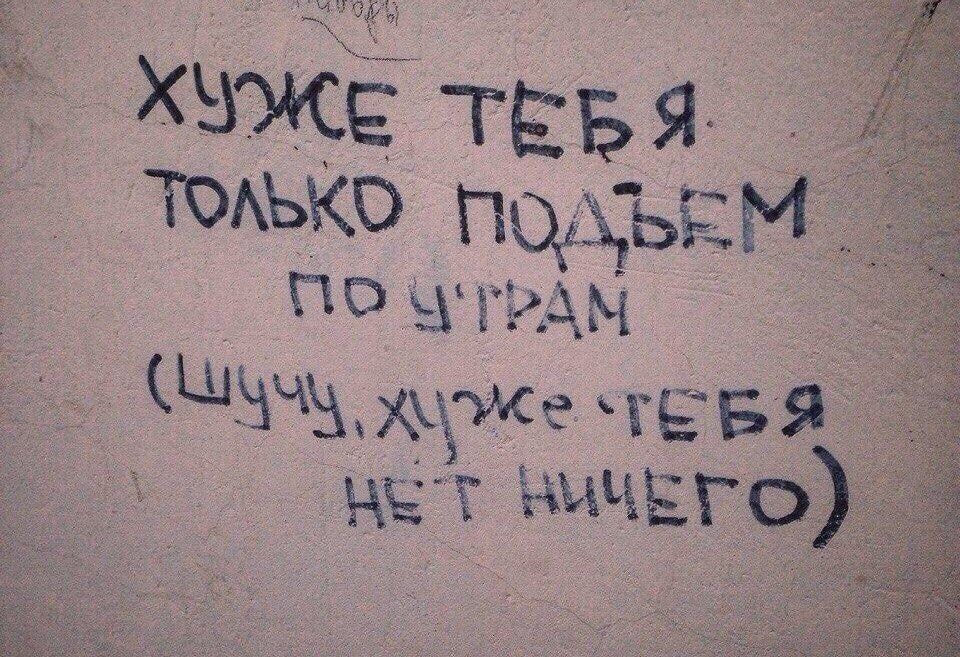 ХУЖЕ ТЕБЯ
ТОЛЬКО ПОДЪЕМ
ПО УТРАМ
(ШУЧУ, ХУЖЕ ТЕБЯ
НЕТ НИЧЕГО)